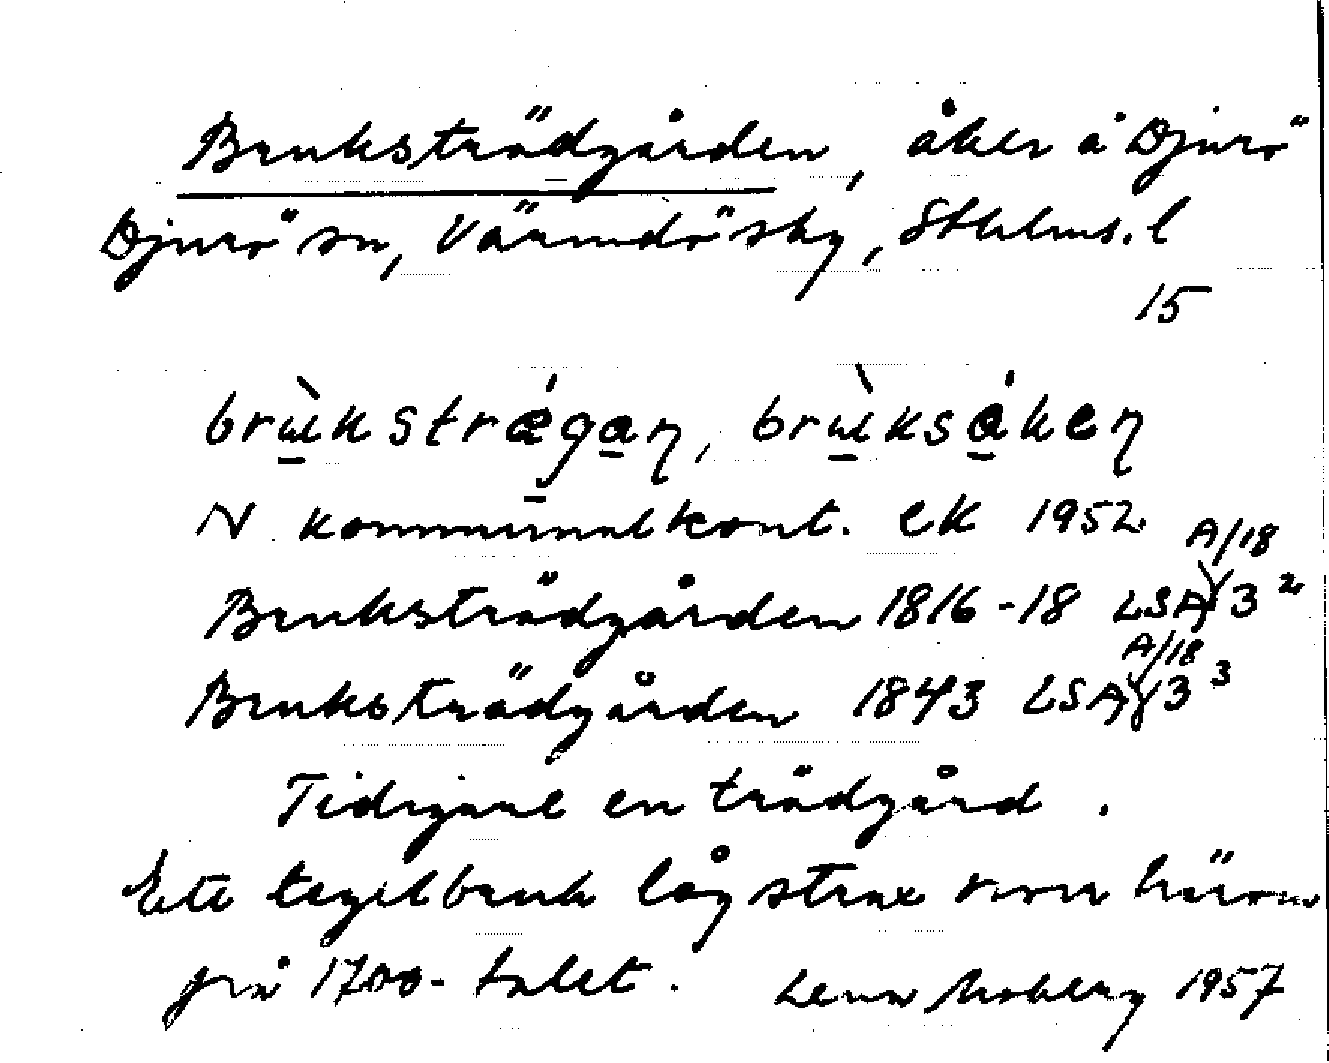 Bruksträdgården, åker å Djurö
Djurö sn, Värmdö sky, Sthlms. l
15
brɯ̀kstrǽgaɳ, brɯ̀ksákeɳ
N kommunalkont. ek 1952
Bruksträdgården 1816-18 LSA A/18 3²
Bruksträdgården 1843 LSA A/18 3³
Tidigare en trädgård.
Ett tegelbruk låg strax norr härom
på 1700-talet. Lena Moberg 1957